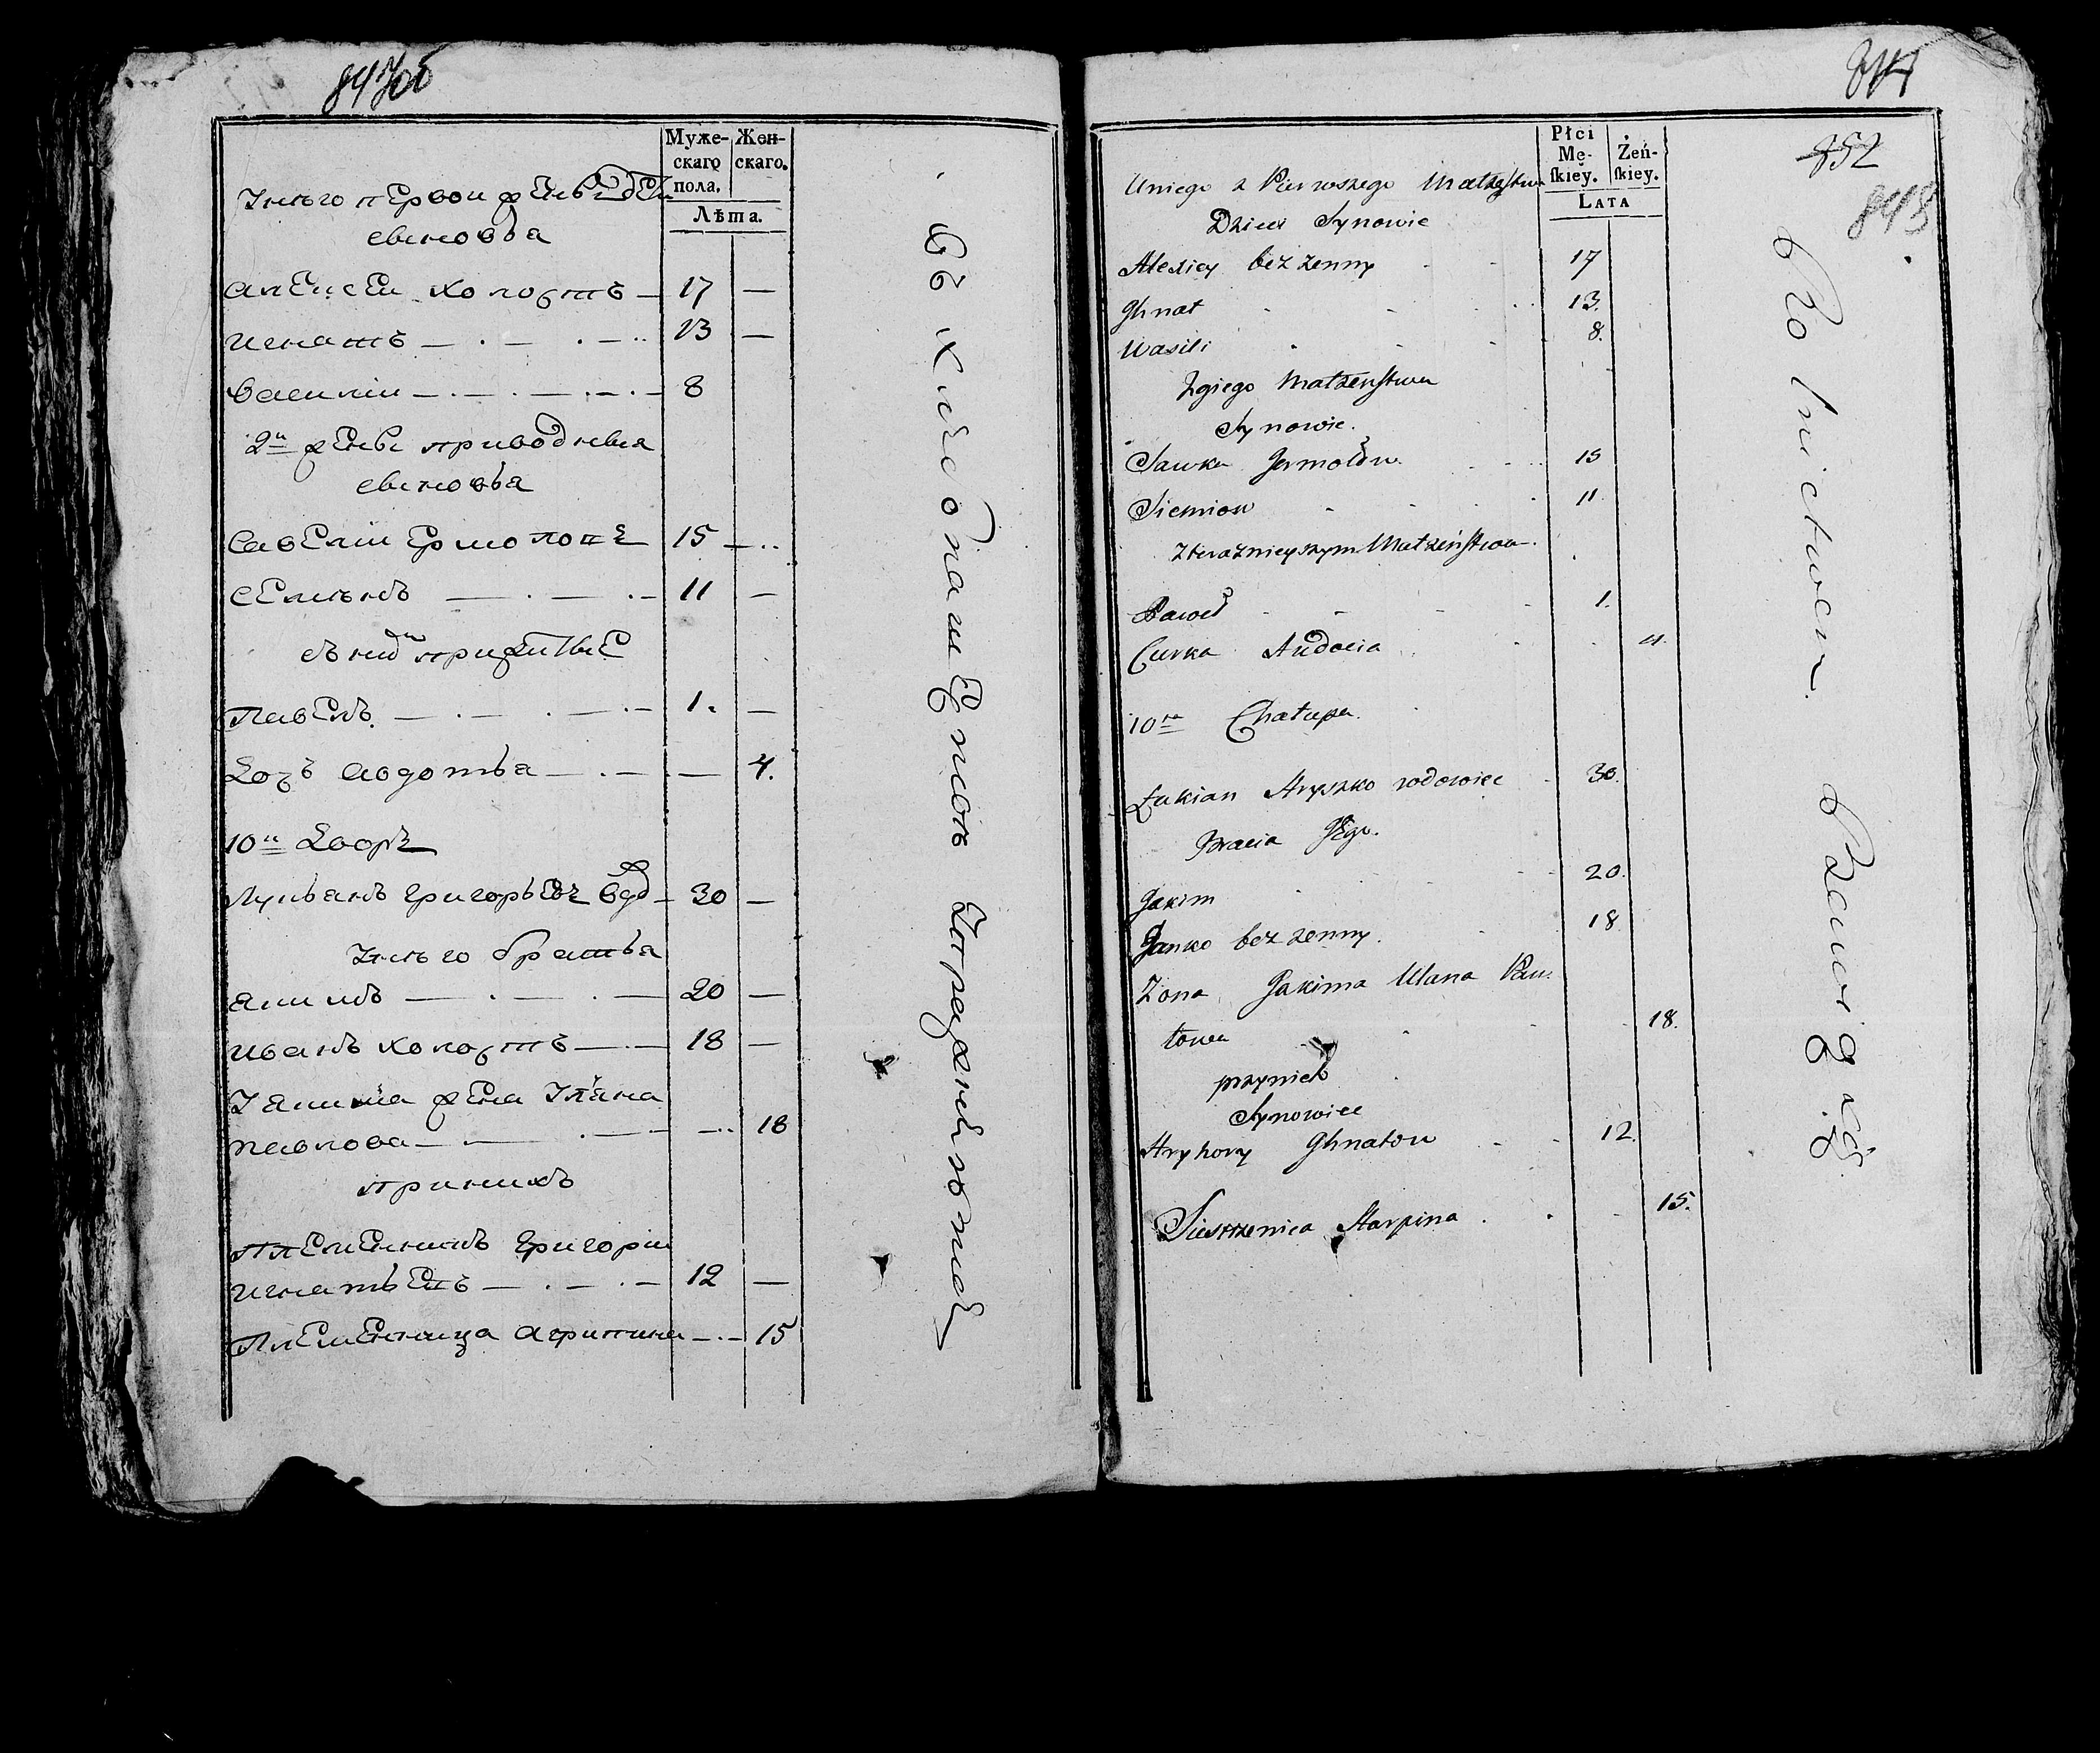 847об
Муже-
скаго
пола.
Жен-
скаго.
Лѣта.
Унего первой жены дѣти
сыновья
Алексей холостъ — 17 —
Игнатъ — 13 —
Василий — 8
2й жены приводныя
сыновья
Савелий Ермоловъ 15
Семионъ — 11 —
с нею прижитые
Павелъ — 1. —
Дочь Авдотья — 4.
10й Дворъ
Лукьянъ Григорьевъ вдов — 30 —
Унего братья
Якимъ — 20 —
Иванъ холостъ — 18 —
У Якима жена Ульяна
Павлова — 18
при нихъ
Племенникъ Григорий
Игнатьевъ — 12 —
Племенница Агрипина — 15
Съ хлебопашествомъ
852
848
Płci
Mę-
ſkiey.
Żeń-
ſkiey.
LATA
Uniego z Pierwszego Małżęstwa
Dzieci Synowie
Alexiey bez zenny 17
Ihnat 13.
Wasili 8.
2giego Małżeństwa
Synowie.
Sawka Jermołów 15
Siemion 11
z teraznieyszym Małżeństwem
Paweł 1.
Curka Audocia 4.
10ta Chałupa.
Łukian Hryszko wdowiec 30.
Bracia Jego.
Jakim 20.
Janko bez zenny. 18
Zona Jakima Ulana Paw
łowa 18.
przynich
Synowiec
Hryhory Ihnatow 12.
Siestrzenica Harpina 15.